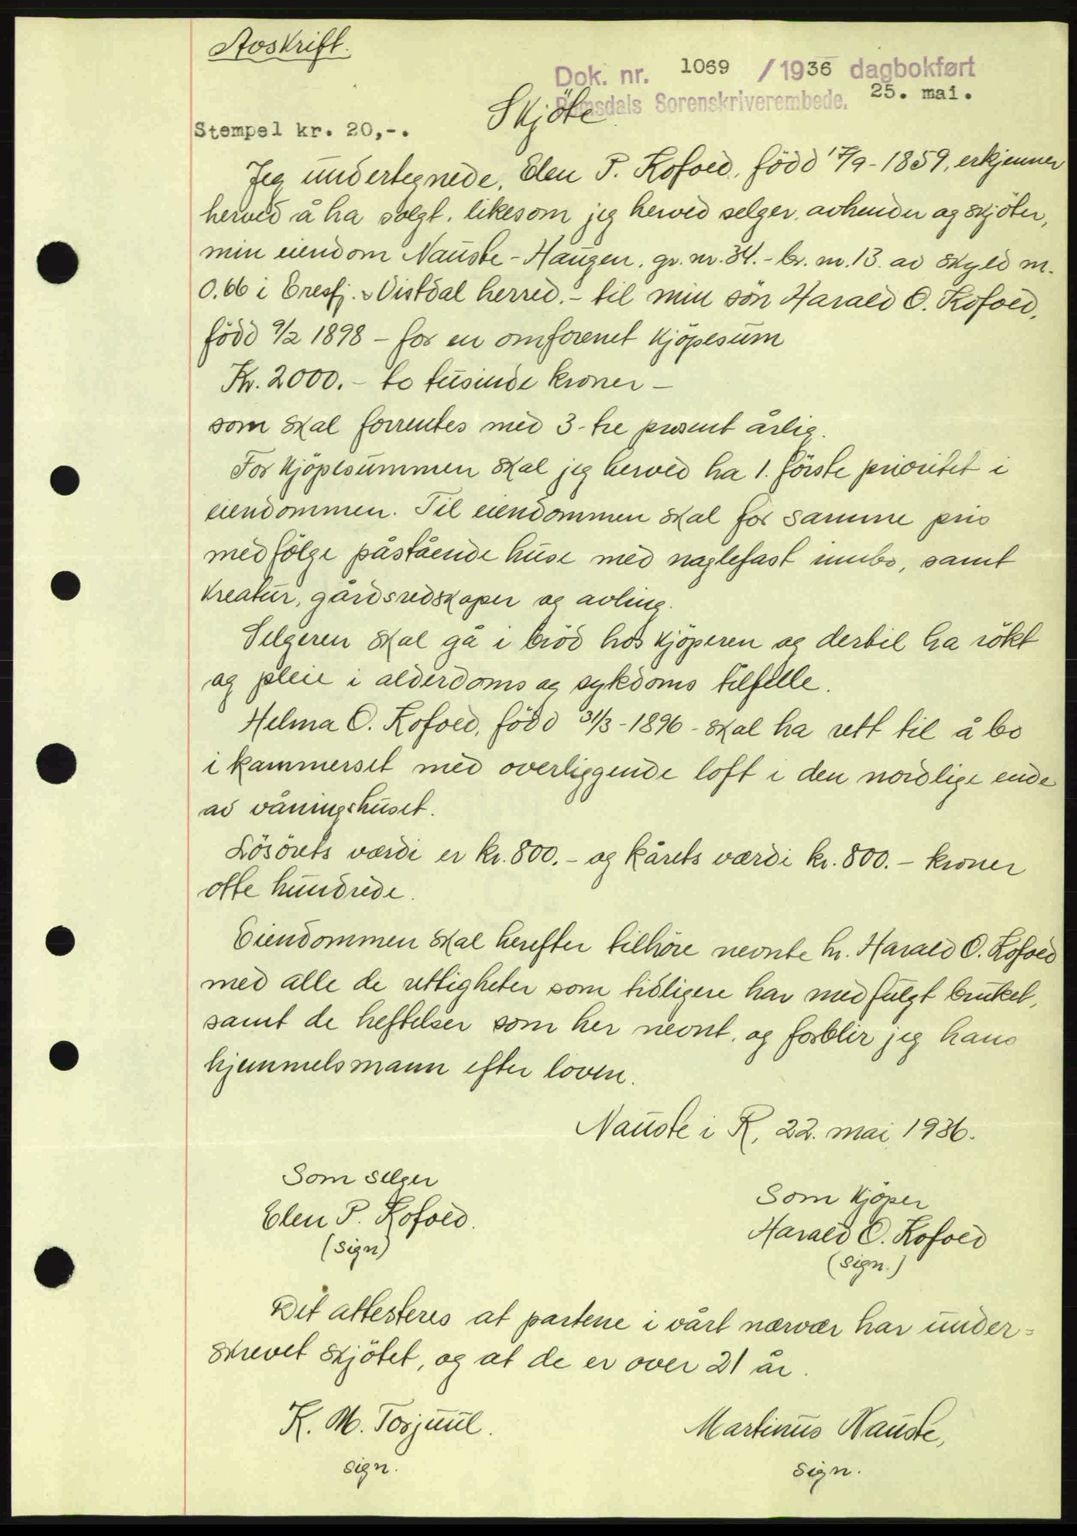 Avskrift.
Dok. nr. 1069 / 1936 dagbokført
Romsdals Sorenskriverembede. 25. mai.
Skjöte
Stempel kr. 20,-.
Jeg undertegnede, Elen P. Kofoed, född 17/9 - 1859, erkjenner
herved å ha solgt, likesom jeg herved selger, avhender og skjöter,
min eiendom Nauste - Haugen, gr. nr. 34. - br. nr. 13. av skyld m.
0.66 i Eresfj. & Vistdal herred. - til min sön Harald O. Kofoed,
född 9/2 1898 - for en omforenet kjöpesum
Kr. 2000. - to tusinde kroner -
som skal forrentes med 3 - tre prosent årlig.
For kjöpesummen skal jeg herved ha 1. förste prioritet i
eiendommen. Til eiendommen skal for samme pris
medfölge påstående huse med naglefast innbo, samt
kreatur, gårdsredskaper og avling.
Selgeren skal gå i bröd hos kjöperen og dertil ha rökt
og pleie i alderdoms og sykdoms tilfelle.
Helma O. Kofoed, född 31/3 - 1896 - skal ha rett til å bo
i kammerset med overliggende loft i den nordlige ende
av våningshuset.
Lösörets værdi er kr. 800. - og kårets værdi kr. 800. - kroner
otte hundrede.
Eiendommen skal herefter tilhöre nevnte hr. Harald O. Kofoed
med alle de rettigheter som tidligere har medfulgt bruket,
samt de heftelser som her nevnt, og forblir jeg hans
hjemmelsmann efter loven.
Nauste i R, 22. mai 1936.
Som selger
Elen P. Kofoed.
(sign)
Som kjöper
Harald O. Kofoed
(sign.)
Det attesteres at partene i vårt nærvær har under=
skrevet skjötet, og at de er over 21 år.
K. M. Torjuul.
sign.
Martinus Nauste,
sign.